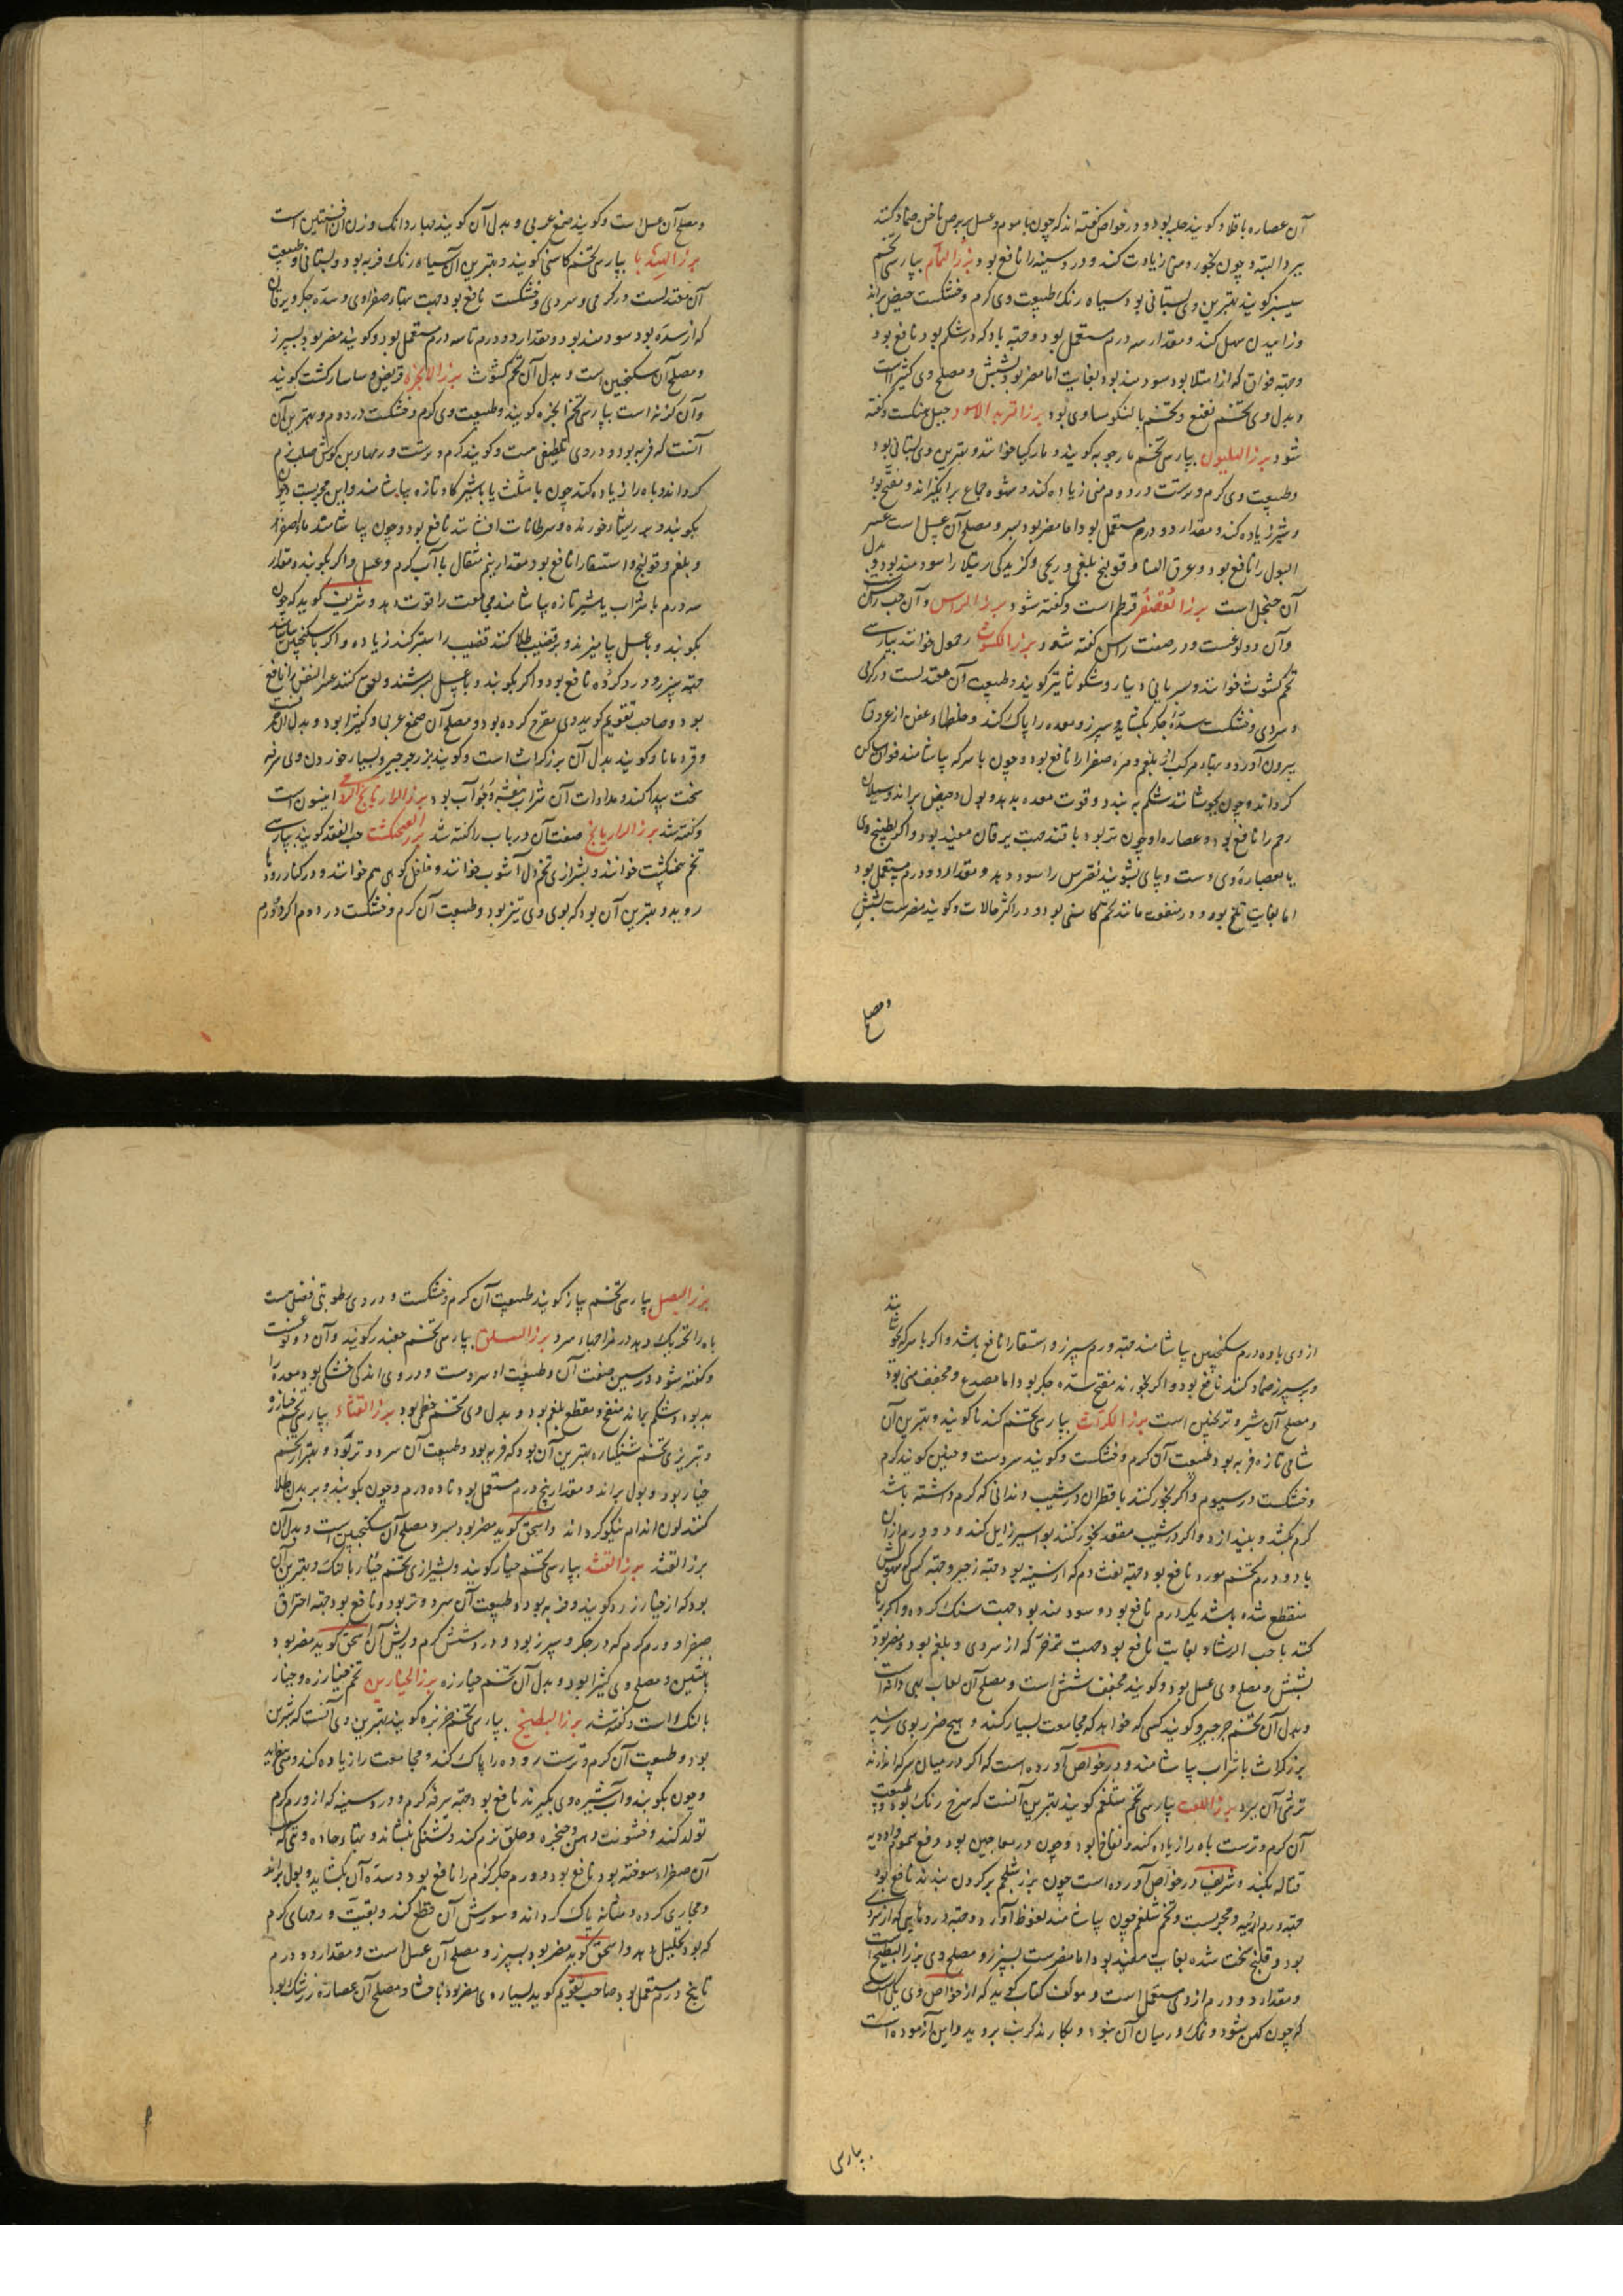 آن عصاره باقلا و کویند حلبه بود و در خواص کفته اند که چون با موم و عسل بر برص ناخن ضماد کنند
ببرد البته و چون بخورد منی زیادت کند و درد سینه را نافع بود بزر النمام بپارسی تخم
سیسنبر کویند بهترین وی بستانی بود سیاه رنک طبیعت وی کرم و خشکست حیض براند
و زاییدن سهل کند و مقدار سه درم مستعمل بود و جهة باد که در شکم بود نافع بود
و جهة فواق که از امتلا بود سودمند بود بغایت اما مضر بود بشش و مصلح وی کثیرا است
و بدل وی تخم نعنع و تخم بالنکو مساوی بود بزر الاسود حبل منکست و کفته
شود بزر الهلیون بپارسی تخم مارجوبه کویند و مارکیا خوانند و بهترین وی بستانی بود
و طبیعت وی کرم و ترست در دوم منی زیاده کند و شهوه جماع برانکیزاند و مفتح بود
و شیر زیاده کند و مقدار دو درم مستعمل بود اما مضر بود بسر و مصلح آن عسل است عسر
البول را نافع بود و عرق النسا و قولنج بلغمی و ریحی و کزیدکی رتیلا را سودمند بود و بدل
آن حنجل است بزر العصفر قرطم است و کفته شود بزر الراس و آن حب راسن است
و آن دو نوعست و در صفت راسن کفته شود بزر الکشوث رحمول خوانند بپارسی
تخم کشوث خوانند و بسریانی دینار و شکوثا نیز کویند و طبیعت آن معتدلست در کرمی
و سردی و خشکست سدّهٔ جکر بکشاید و سپرز و معده را پاک کند و خلطهاء عفن از عروق
بیرون آورد و تبهاء مرکب از بلغم و مرهٔ صفرا را نافع بود و چون با سرکه بیاشامند فواق ساکن
کرداند و چون بجوشانند شکم ببندد و قوت معده بدهد و بول و حیض براند و سیلان
رحم را نافع بود و عصاره او چون تر بود با قند جهت یرقان مفید بود و اکر بطبیخ وی
یا بعصارهٔ وی دست و پای بشویند نقرس را سود دهد و مقدار دو درم مستعمل بود
اما بغایت تلخ بود و در منفعت مانند تخم کاسنی بود در اکثر حالات و کویند مضرست بشش
و مصلح
و مصلح آن عسل است و کویند صمغ عربی و بدل آن کویند چهار دانک وزن آن افسنتین است
بزر الهندبا بپارسی تخم کاسنی کویند و بهترین آن سیاه رنک فربه بود و بستانی و طبیعت
آن معتدلست در کرمی و سردی و خشکست نافع بود جهت تبهاء صفراوی و سدّه جکر و یرقان
که از سدّه بود سودمند بود و مقدار دو درم تا سه درم مستعمل بود و کویند مضر بود بسپرز
و مصلح آن سکنجبین است و بدل آن تخم کشوث بزر الانجره قریض و ساسارکشت کویند
و آن کزنه است بپارسی تخم انجره کویند و طبیعت وی کرم و خشکست در دوم و بهترین آن
آنست که فربه بود و در وی تلطیفی هست و کویند کرم و ترست ورمهاء بن کوش صلب نرم
کرداند و باه را زیاده کند چون با مثلث یا با شیر کاو تازه بیاشامند و این مجربست و چون
بکوبند و بر ریشهاء خورنده و سرطانات افشانند نافع بود و چون بیاشامند ماده صفرا
و بلغم و قولنج و استسقا را نافع بود مقدار نیم مثقال با آب کرم و عسل و اکر بکوبند و مقدار
سه درم با شراب یا شیر تازه بیاشامند مجامعت را قوت دهد و شریف کوید که چون
بکوبند و با عسل بیامیزند و بر قضیب طلا کنند قضیب را ستبر کند زیاده و اکر با سکنجبین بیاشامند
جهة سپرز و درد کرده نافع بود و اکر بکوبند و با عسل بسرشند و لعوق کنند عسر النفس را نافع
بود و صاحب تقویم کوید وی مقرح کرده بود و مصلح آن صمغ عربی و کثیرا بود و بدل آن
و قردمانا و کویند بدل آن بزر کراث است و کویند بزر جرجیر و بسیار خوردن وی سرفه
سخت پیدا کند و مداوات آن شراب بنفشه و جو آب بود بزر الرازیانج الرومی انیسون است
و کفته شد بزر الرازیانج صفت آن در باب را کفته شد بزر الفنجنکشت حب الفقد کویند بپارسی
تخم پنجنکشت خوانند و بشیرازی تخم دل آشوب خوانند و فلفل کوهی هم خوانند و در کنار رودها
روید و بهترین آن بود که بوی وی تیز بود و طبیعت آن کرم و خشکست در دوم اکر دو درم
از وی با ده درم سکنجبین بیاشامند جهة ورم سپرز و استسقا را نافع باشد و اکر با سرکه بجوشانند
و بر سپرز ضماد کنند نافع بود و اکر بخورند مفتح سدّه جکر بود اما مصدع و مجفف منی بود
و مصلح آن شیر و ترنجبین است بزر الکراث بپارسی تخم کندنا کویند و بهترین آن
شامی تازه فربه بود طبیعت آن کرم و خشکست و کویند سردست و حنین کوید کرم
و خشکست در سیوم و اکر بخور کنند با قطران در شیب دندانی که کرم داشته باشد
کرم بکشد و بیندازد و اکر در شیب مقعد بخور کنند بواسیر زایل کند و دو درم از آن
با دو درم تخم مورد نافع بود جهة نفث دم که از سینه بود و جهة زحیر و جهة کسی که
منقطع شده باشد یک درم نافع بود و سودمند بود جهت سنک کرده و اکر بریان
کنند با حب الرشاد بغایت نافع بود جهت تزحر که از سردی و بلغم بود و مضر بود
بشش و مصلح وی عسل بود و کویند مجفف شش است و مصلح آن لعاب بهی دانه است
و بدل آن تخم جرجیر و کویند کسی که خواهد که مجامعت بسیار کند و هیچ ضرر بوی نرسد
بزر کراث با شراب بیاشامند و در خواص آورده است که اکر در میان سرکه اندازند
ترشی آن ببرد بزر اللفت بپارسی تخم شلغم کویند بهترین آنست که سرخ رنک بود و طبیعت
آن کرم و ترست باه را زیاده کند و نفاخ بود و چون در معاجین بود دفع سموم و ادویه
قتاله بکند و شریف در خواص آورده است چون بزر شلجم بر کردن بندند نافع بود
جهة ورم اربیه و مجربست و تخم شلغم چون بیاشامند نعوظ آورد و جهة درد که از سردی
بود و قلنج سخت شده بغایت مفید بود اما مضرست بسپرز و مصلح وی بزر البطیخ است
و مقدار دو درم از وی مستعمل است و مولف کتاب کوید که از خواص وی یکی است
که چون کهن شود و نمک در میان آن نبود و بکارند کرنب بروید و این آزموده است
بپارسی
بزر البصل بپارسی تخم پیاز کویند طبیعت آن کرم و خشکست و در وی رطوبتی فضلی هست
باه را تحریک دهد در مزاجهاء سرد بزر السلق بپارسی تخم چغندر کویند و آن دو نوعست
و کفته شود در سین صفت آن و طبیعت او سردست و در وی اندکی خشکی بود معده را
بد بود و شکم براند منفخ و مقطع بلغم بود و بدل وی تخم خطمی بود بزر القثاء بپارسی تخم خیارزه
و تبریزی تخم شنکیار بهترین آن بود که فربه بود و طبیعت آن سرد و تر بود و بهتر از تخم
خیار بود و بول براند و مقدار پنج درم مستعمل بود تا ده درم و چون بکوبند و بر بدن طلا
کنند لون اندام نیکو کرداند و اسحق کوید مضر بود بسر و مصلح آن سکنجبین است و بدل آن
بزر القثد بزر القثد بپارسی تخم خیار کویند و بشیرازی تخم خیار بالنک و بهترین آن
بود که از خیار زرد کویند و فربه بود و طبیعت آن سرد و تر بود و نافع بود جهة احتراق
صفرا و ورم کرم که در جکر و سپرز بود و درد شش کرم و ریش آن اسحق کوید مضر بود
بانثیین و مصلح وی کثیرا بود و بدل آن تخم خیارزه بزر الخیارین تخم خیارزه و خیار
بالنک است و کفته شد بزر البطیخ بپارسی تخم خربزه کویند بهترین وی آنست که شیرین
بود و طبیعت آن کرم و ترست روده را پاک کند و مجامعت را زیاده کند و منی بیفزاید
و چون بکوبند و آب شیره وی بکیرند نافع بود جهة سرفه کرم و درد سینه که از ورم کرم
تولد کند و خشونت دهن و حنجره و حلق نرم کند و تشنکی بنشاند و تبهاء حاده و تبی که
آن صفراء سوخته بود نافع بود و ورم جکر کرم را نافع بود و سدّه آن بکشاید و بول براند
و مجاری کرده و مثانه پاک کرداند و سوزش آن قطع کند و بقیت ورمهای کرم
که بود تحلیل دهد و اسحق کوید مضر بود بسپرز و مصلح آن عسل است و مقدار دو درم
تا پنج درم مستعمل بود صاحب تقویم کوید بسیار وی مضر بود باحشا و مصلح آن عصاره زرشک بود